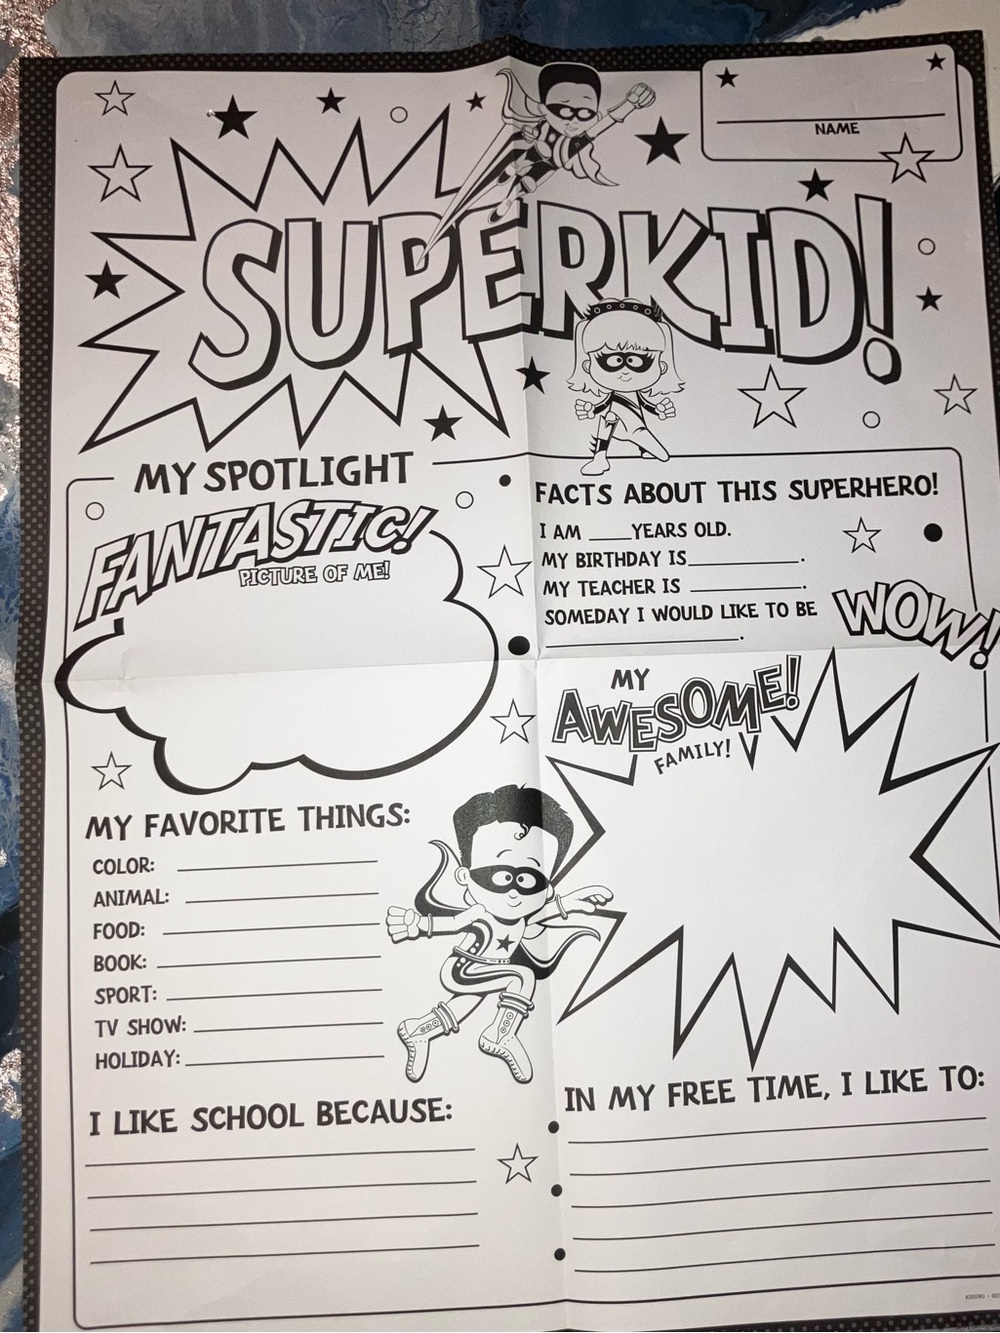 NAME
SUPERKID!
MY SPOTLIGHT
FANTASTIC!
PICTURE OF ME!
FACTS ABOUT THIS SUPERHERO!
I AM ____YEARS OLD.
MY BIRTHDAY IS__________.
MY TEACHER IS __________.
SOMEDAY I WOULD LIKE TO BE
____________________.
WOW!
MY
AWESOME!
FAMILY!
MY FAVORITE THINGS:
COLOR:
ANIMAL:
FOOD:
BOOK:
SPORT:
TV SHOW:
HOLIDAY:
I LIKE SCHOOL BECAUSE:
IN MY FREE TIME, I LIKE TO: